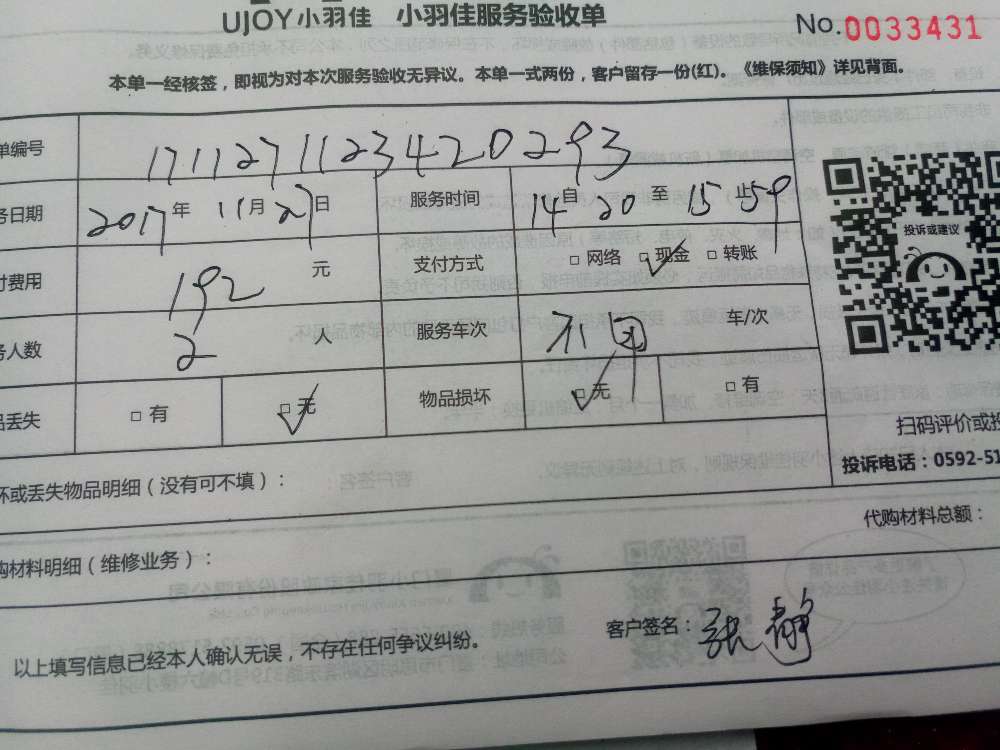 UJOY小羽佳 小羽佳服务验收单
No.0033431
本单一经核签，即视为对本次服务验收无异议。本单一式两份，客户留存一份(红)。《维保须知》详见背面。
单编号 17112711234420293
务日期 2017年 11月27日 服务时间 14自20至15止59
付费用 192元 支付方式 □网络 □现金 □转账
务人数 2人 服务车次 车/次
品丢失 □有 □无 物品损坏 □无 □有
投诉或建议
扫码评价或投
投诉电话：0592-51
坏或丢失物品明细（没有可不填）：
代购材料总额：
购材料明细（维修业务）：
以上填写信息已经本人确认无误，不存在任何争议纠纷。
客户签名：张静